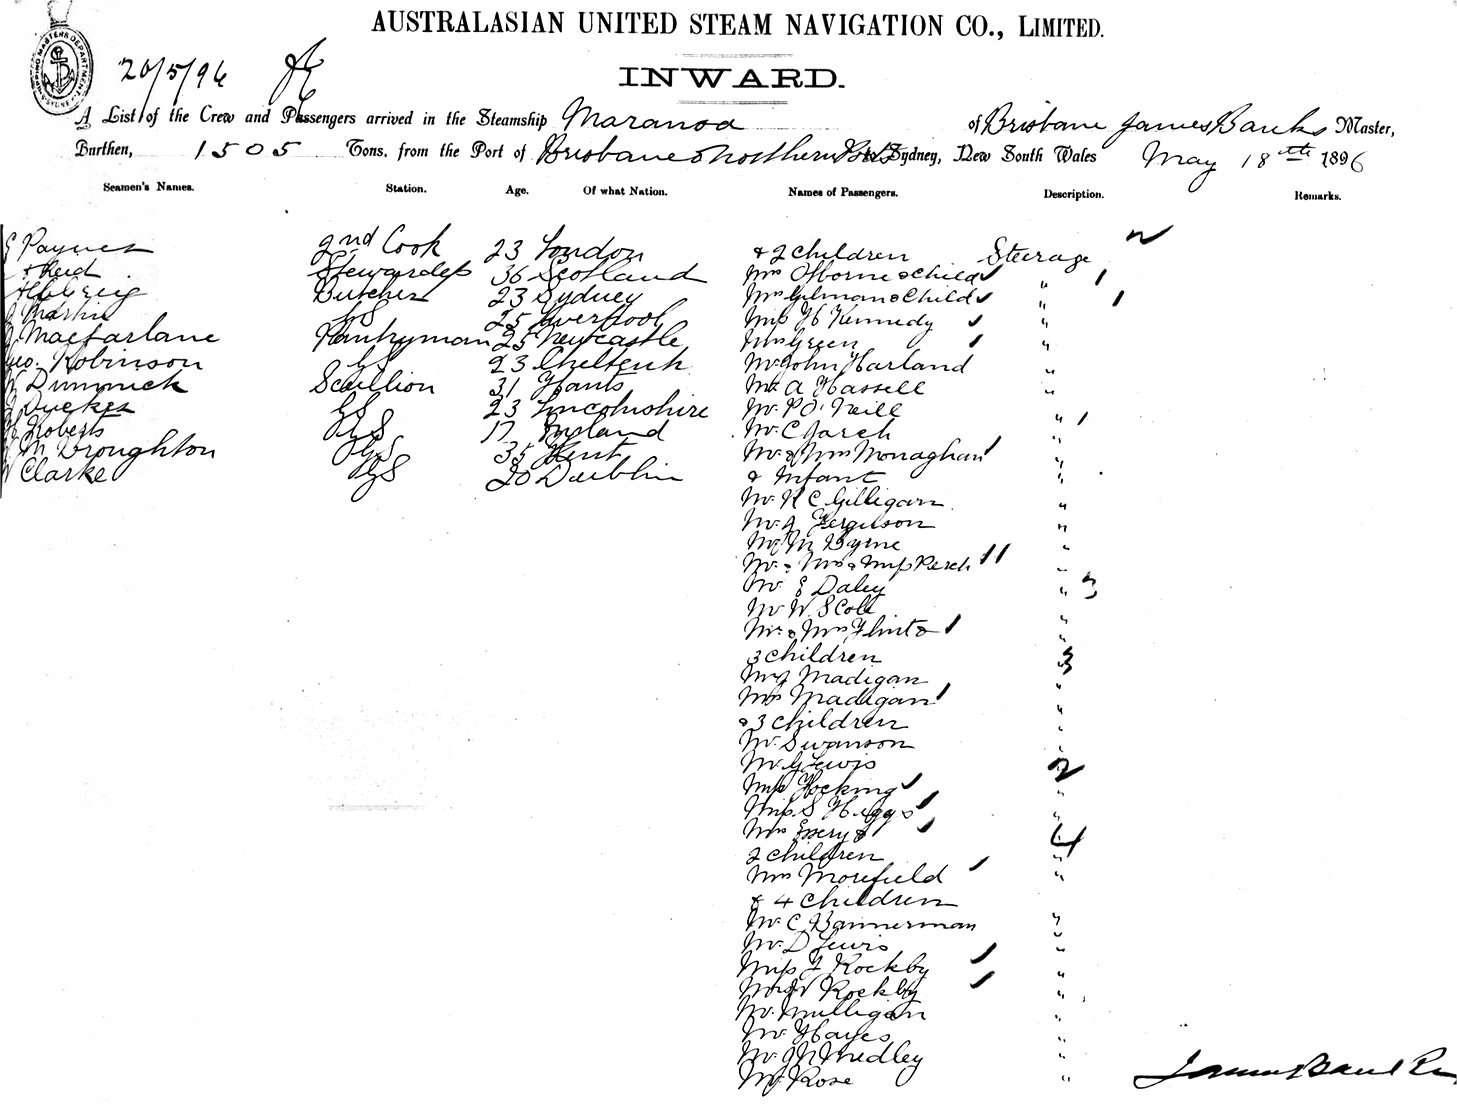 AUSTRALASIAN UNITED STEAM NAVIGATION CO., LIMITED.
SHIPPING MASTERS DEPARTMENT SYDNEY
20/5/96
INWARD.
A List of the Crew and Passengers arrived in the Steamship Maranoa of Brisbane James Banks Master,
Burthen, 1505 Tons, from the Port of Brisbane & Northern Pts to Sydney, New South Wales May 18th 1896
Seamen's Names. Station. Age. Of what Nation. Names of Passengers. Description. Remarks.
Payne 2nd Cook 23 London & 2 children Steerage 2
Reid Stewardess 36 Scotland Mrs Osborne & child " 1
Butcher 23 Sydney Mrs Gilman & Child " 1
Martin GS 25 Liverpool Miss H Kennedy "
Macfarlane Pantryman 25 Newcastle Mrs Green "
Geo. Robinson GS 23 Cheltenh Mr John Harland
Dimmick Scullion 31 Hants Mr A Hassell "
Duckes GS 23 Lincolnshire Mr P O'Neill
Roberts GS 17 England Mr C Jarch " 1
M Broughton GS 35 Kent Mr & Mrs Monaghan "
Clarke GS 20 Dublin & Infant "
Mr R C Gilligan "
Mr A Ferguson "
Mr M Byrne "
Mr & Mrs & Miss Perch "
Mr E Daley " 3
Mr W Scott "
Mr & Mrs Flint & "
3 children 3
Madigan "
Mrs Madigan "
& 3 children
Mr Swanson
Mr G Lewis 2
Miss Hocking "
Miss S Higgs "
Mrs Every & 4
2 children "
Mrs Morefield "
& 4 children
Mr C Bannerman "
Mr D Lewis "
Miss J Rockby "
Rockby "
Mr Mulligan "
Mr Hayes "
Mr J N Medley "
Mr Rose "
James Banks